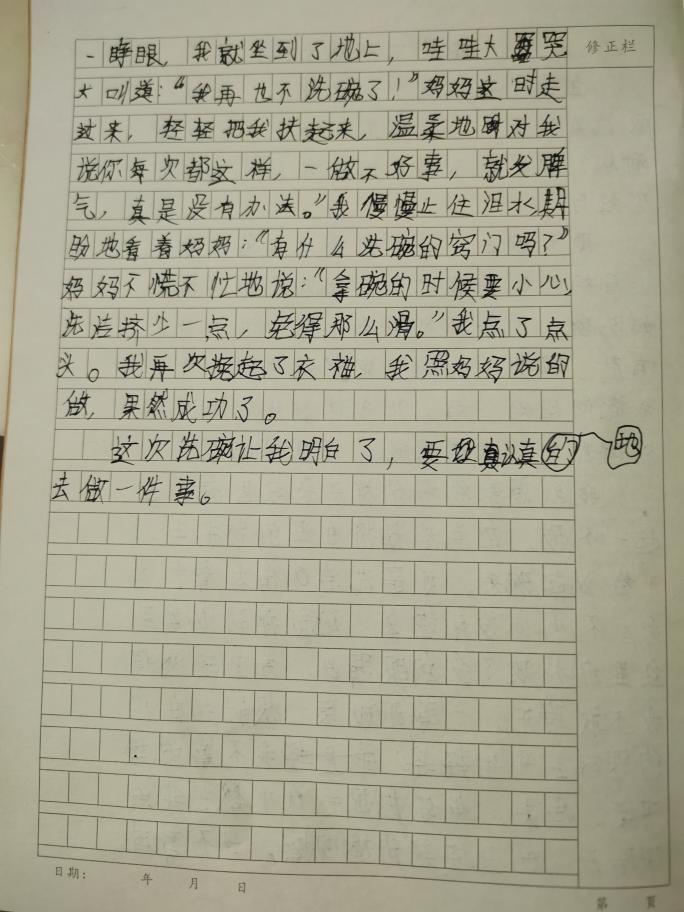 一睁眼，我就坐到了地上，哇哇大哭 修正栏
大叫道：“我再也不洗碗了！”妈妈这时走
过来，轻轻把我扶起来，温柔地对我
说你每次都这样，一做不好事，就发脾
气，真是没有办法。”我慢慢止住泪水期
盼地看着妈妈：“有什么洗碗的窍门吗？”
妈妈不慌不忙地说：“拿碗的时候要小心，
洗洁挤少一点，免得那么滑。”我点了点
头。我再次挽起了衣袖，我照妈妈说的
做，果然成功了。
这次洗碗让我明白了，要认真地
去做一件事。
日期： 年 月 日
第 页